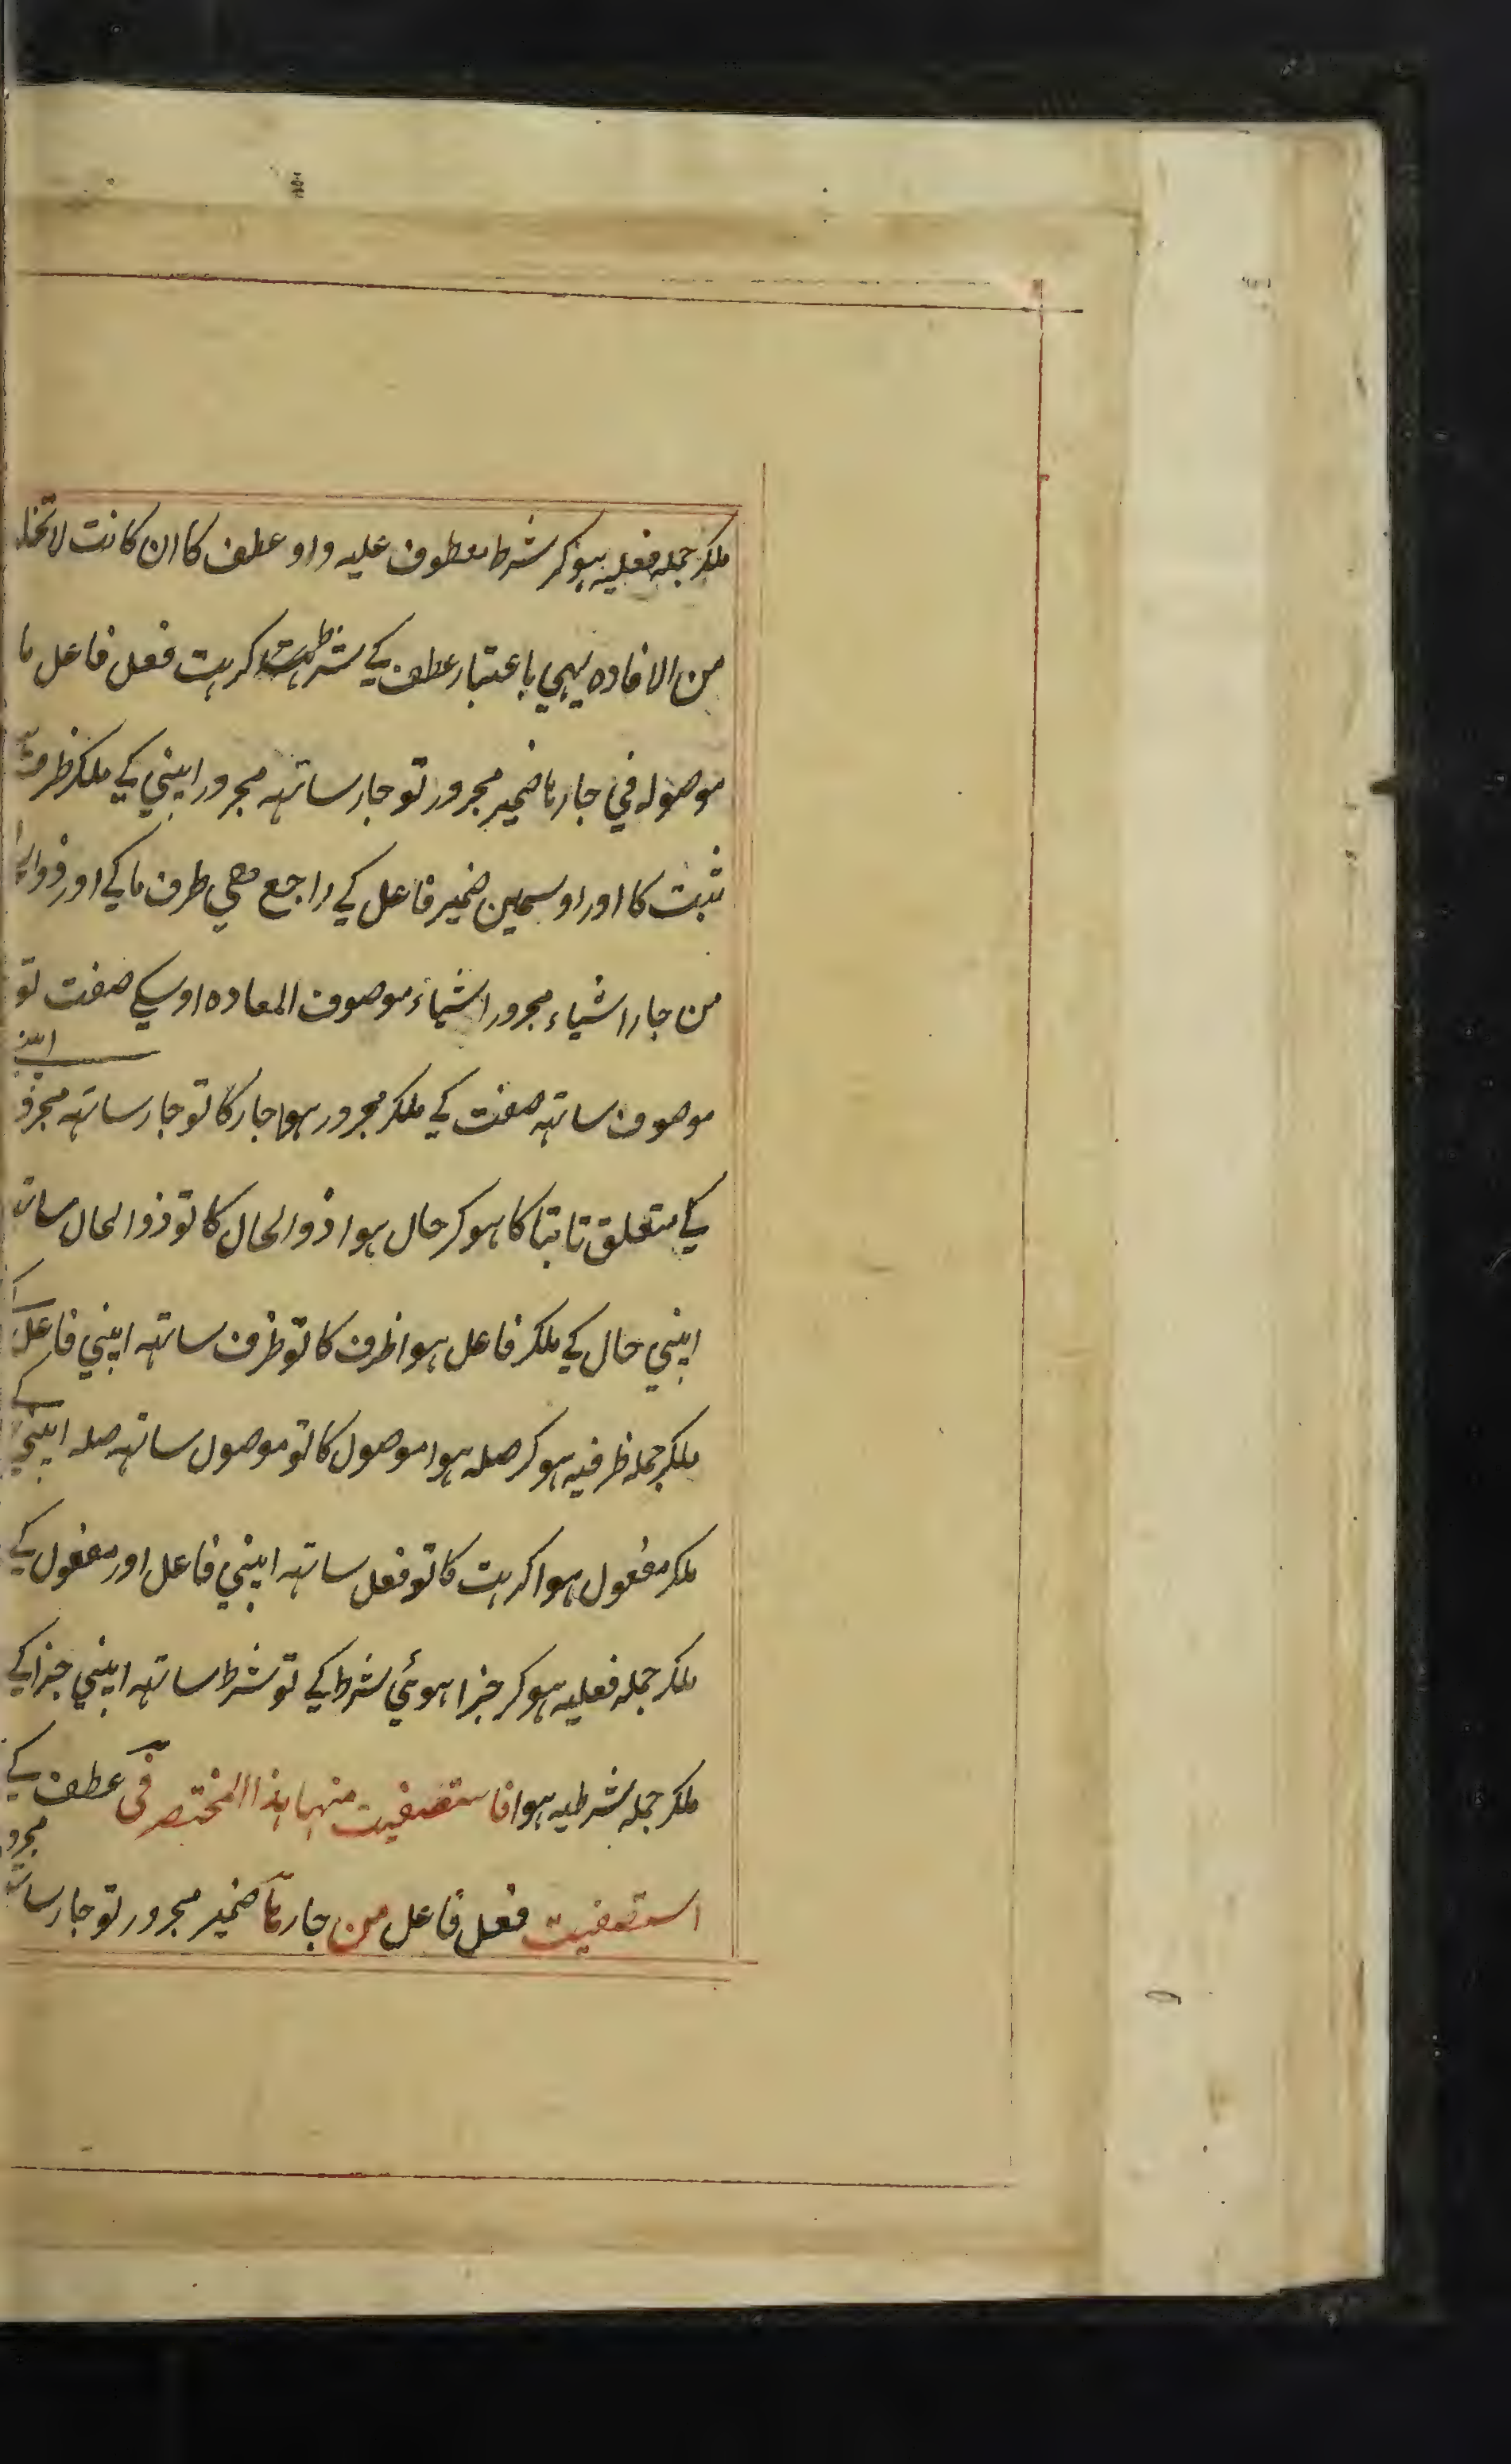 ملکر جمله فعلیه ہوکر شرط معطوف علیه واو عطف کا ان کانت لا تخلو
من الافاده یہی باعتبار عطف کے شرط کرہت فعل فاعل ما
موصوله فی جار ہا ضمیر مجرور تو جار ساتہہ مجرور اپنی کے ملکر ظرف
ثبت کا اور اوسمین ضمیر فاعل کے راجع ہی طرف ما کے اور ذوالحال
من جار اشیاء مجرور اشیاء موصوف المعاده اوسکے صفت تو
موصوف ساتہہ صفت کے ملکر مجرور ہوا جار کا تو جار ساتہہ مجرور اپنی
کے متعلق ثابتا کا ہوکر حال ہوا ذوالحال کا تو ذوالحال ساتہہ
اپنی حال کے ملکر فاعل ہوا ظرف کا تو ظرف ساتہہ اپنی فاعل کے
ملکر جمله ظرفیه ہوکر صله ہوا موصول کا تو موصول ساتہہ صله اپنی کے
ملکر مفعول ہوا کرہت کا تو فعل ساتہہ اپنی فاعل اور مفعول کے
ملکر جمله فعلیه ہوکر جزا ہوئی شرط کے تو شرط ساتہہ اپنی جزا کے
ملکر جمله شرطیه ہوا فاستصفیت منہا ہذا المختصر فی عطف کے
استصفیت فعل فاعل من جار ہا ضمیر مجرور تو جار ساتہہ مجرور